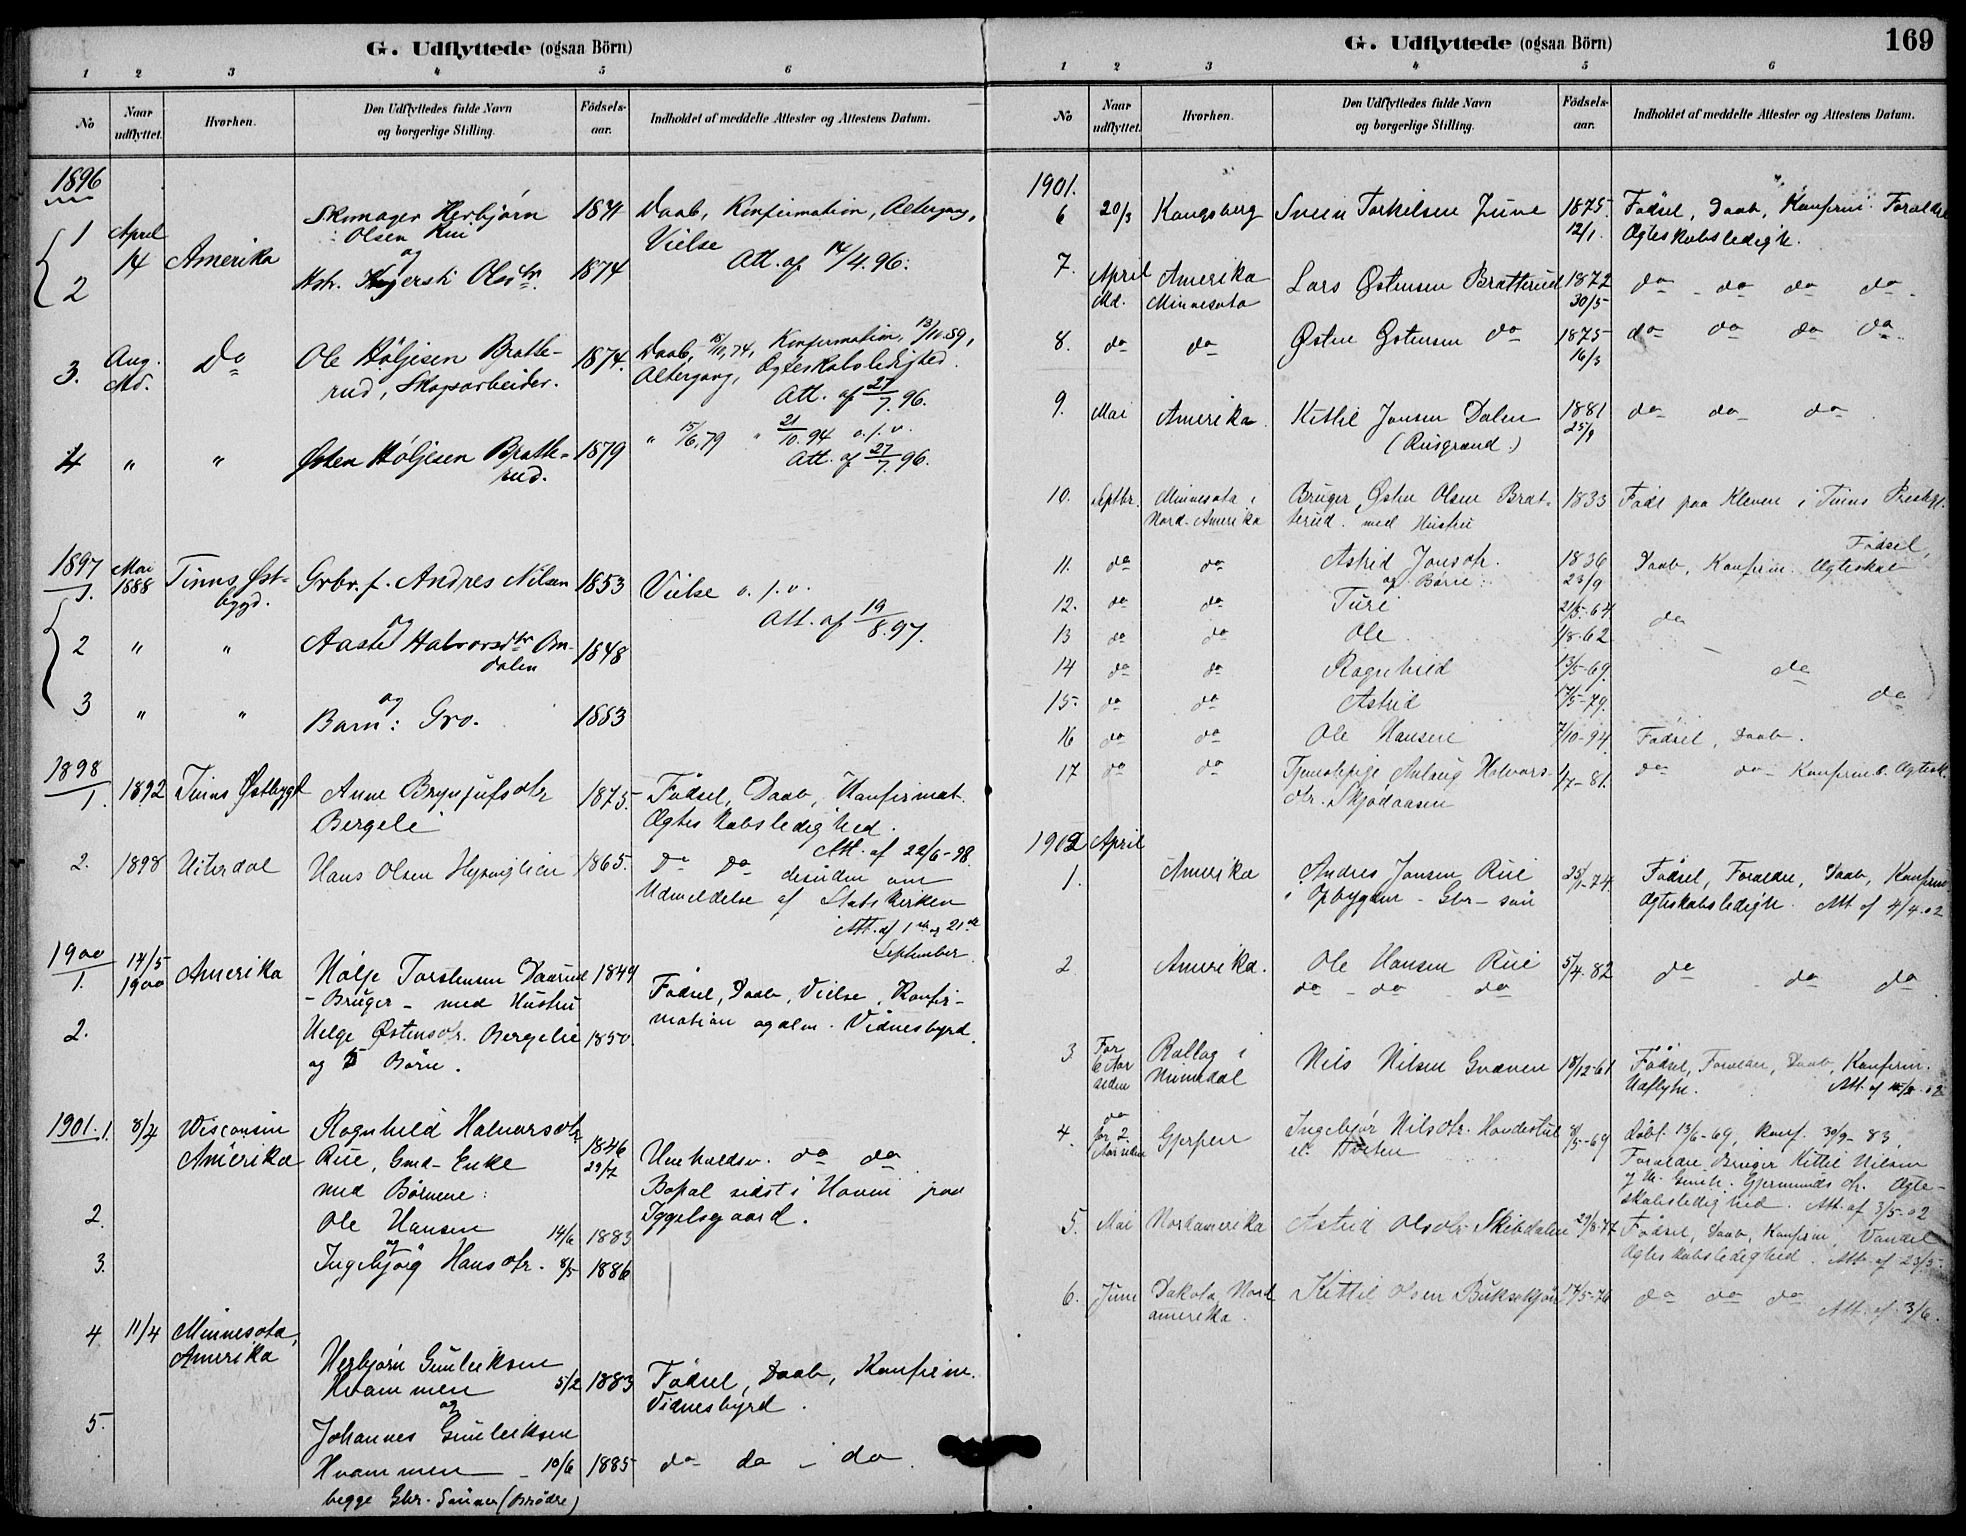 G. Udflyttede (ogsaa Börn)
1 2 3 4 5 6
No
Naar udflyttet.
Hvorhen.
Den Udflyttedes fulde Navn
og borgerlige Stilling.
Födsels-
aar.
Indholdet af meddelte Attester og Attestens Datum.
1896
1 April 14 Amerika Skomager Herbjörn 1841 Daab, Konfirmation, Altergang,
Olsen Rui Vielse
og Att. af 14/4.96.
2 Hstr. Olsdtr. 1874
3. Aug. Md. Do Ole Höljesen Bratte- 1874. Daab, Konfirmation, 13/10.89,
rud, Altergang, Ægteskabsledighed.
Att. af 27/7.96.
4 " " Østen Höljesen Bratte- 1879 " 15/6.79 " 21/10.94 o.s.v.
rud. Att. af 27/7.96.
1897
1. Mai 1888 Tinns Øst- Grbr. f. Andres Nilsen 1853 Vielse o.s.v.
bygd. og Att. af 19/8.97.
2 " " Halvorsdtr 1848
dalen
3 " " og
Barn: Gro. 1883
1898
1. 1892 Tinns Østbygd Anne Brynjufsdtr 1875 Födsel, Daab, Konfirmat.
Bergeli Ægteskabsledighed.
Att. af 22/6-98.
2. 1898 Hans Olsen 1865. Do Do desuden om
Udmeldelse af Statskirken
Att. af 1ste og 21de
September.
1900
1. 14/5 1900 Amerika Hölje Torstensen Daarud 1849 Födsel, Daab, Vielse, Konfir-
- Bruger - med Hustru mation og alm. Vidnesbyrd.
2. Helge Østensdtr. Bergelie 1850.
og 5 Börn.
1901. 1. 8/4 Wisconsin Ragnhild Halvorsdtr 1846
Amerika Rue, Gmd-Enke 29/7 do do
med Börnene: Bopæl sidst i Hovin paa
2. Ole Hansen 14/6 1883 Iggelsgaard.
og
3. Ingebjörg Hansdtr. 8/5 1886
4 11/4 Minnesota,
Amerika Herbjörn Gunleiksen
Kvammen 5/2 1883 Födsel, Daab, Konfirm.
og Vidnesbyrd.
5. Johannes Gunleiksen
Kvammen - 10/6 1885 do do - do.
begge Gbr. Sönner (Brödre)
G. Udflyttede (ogsaa Börn) 169
1 2 3 4 5 6
No
Naar udflyttet.
Hvorhen.
Den Udflyttedes fulde Navn
og borgerlige Stilling.
Födsels-
aar.
Indholdet af meddelte Attester og Attestens Datum.
1901.
6 20/3 Kongsberg Svein Torkilsen Juve 1875. Födsel, Daab, Konfirm. Forældre
12/1. Ægteskabsledigh.
7. April Md. Amerika Lars Østensen Bratterud 1872 do - do do do -
Minnesota 30/5
8. do do Østen Østensen do 1875 do do do do
16/3
9. Mai Amerika. Kittil Jonsen Dalen 1881 do do do
(Rusgrand.) 25/9
10. Septbr. Minnesota i Bruger Østen Olsen Brat- 1833 Födt paa Kleven i Tinns Prestgj.
Nord-Amerika terud. med Hustru
11. do do Astrid Jonsdtr. 1836 Födsel,
og Börn: 23/9 Daab, Konfirm. Ægteskab
12. do do Turi 21/5-64 do
13 do do Ole 1/8-62
14 do do Ragnhild 13/5-69. do
15 do do Astrid 17/5-79. do
16 do do Ole Hansen 7/10-94. Födsel, Daab.
17 do do Tjenestepige Anlaug Halvors- 1/7-81. do do - Konfirm. Ægtesk.
dtr. Skjödaasen
1902 April
1. Amerika Andres Jonsen Rui 25/1-74. Födsel, Forældre, Daab, Konfirm.
i Opbygden - Gbr-sön Ægteskabsledigh. Att. af 4/4.02
2 Amerika. Ole Hansen Rui 5/4.82 do - do do
do - do - do
3 For 6 Aar siden Rollag i Nils Nilsen Gvæven 18/12-61 Födsel, Forældre, Daab, Konfirm.
Numedal Udflytn. Att. af
4. do for 2 Aar siden Gjerpen Ingebjör Nilsdtr. 8/5-69 Döbt 13/6-69, Konf. 30/9-83,
Forældre Bruger Kittil Nilsen
Gjermundsdtr. Ægte-
skabsledighed. Att. af 3/5.02
5. Mai Nordamerika Astrid Olsdtr. Skibdalen Födsel, Daab, Konfirm, Vandel
Ægteskabsledighed. Att. af 23/5.
6. Juni Dakota Nord Kittil Olsen 17/5-76 do do do
amerika. Att. af 3/6.